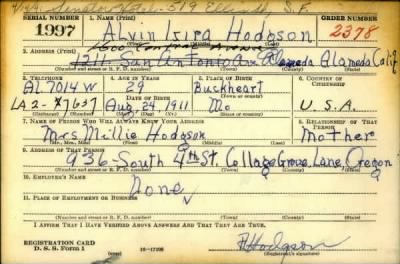 Senator Hotel - 519 Ellis St S.F.
SERIAL NUMBER 1. NAME (Print) ORDER NUMBER
1997 Alvin Isira Hodgson 2378
(First) (Middle) (Last)
1600 Central Avenue
2. ADDRESS (Print)
1211 San Antonio Ave Alameda Alameda Calif
(Number and street or R. F. D. number) (Town) (County) (State)
3. TELEPHONE 4. AGE IN YEARS 5. PLACE OF BIRTH 6. COUNTRY OF CITIZENSHIP
Al. 7014 W 29 Buckheart
DATE OF BIRTH (Town or county)
LA 2-87637 Aug. 24, 1911 Mo U.S.A.
(Exchange) (Number) (Mo.) (Day) (Yr.) (State or country)
7. NAME OF PERSON WHO WILL ALWAYS KNOW YOUR ADDRESS 8. RELATIONSHIP OF THAT PERSON
Mrs Millie Hodgson Mother
(Mr., Mrs., Miss) (First) (Middle) (Last)
9. ADDRESS OF THAT PERSON
936-South 4th St. Collage Grove, Lane, Oregon
(Number and street or R. F. D. number) (Town) (County) (State)
10. EMPLOYER'S NAME
None
11. PLACE OF EMPLOYMENT OR BUSINESS
(Number and street or R. F. D. number) (Town) (County) (State)
I AFFIRM THAT I HAVE VERIFIED ABOVE ANSWERS AND THAT THEY ARE TRUE.
REGISTRATION CARD
D. S. S. Form 1 16-17105 Hodgson
(Registrant's signature)